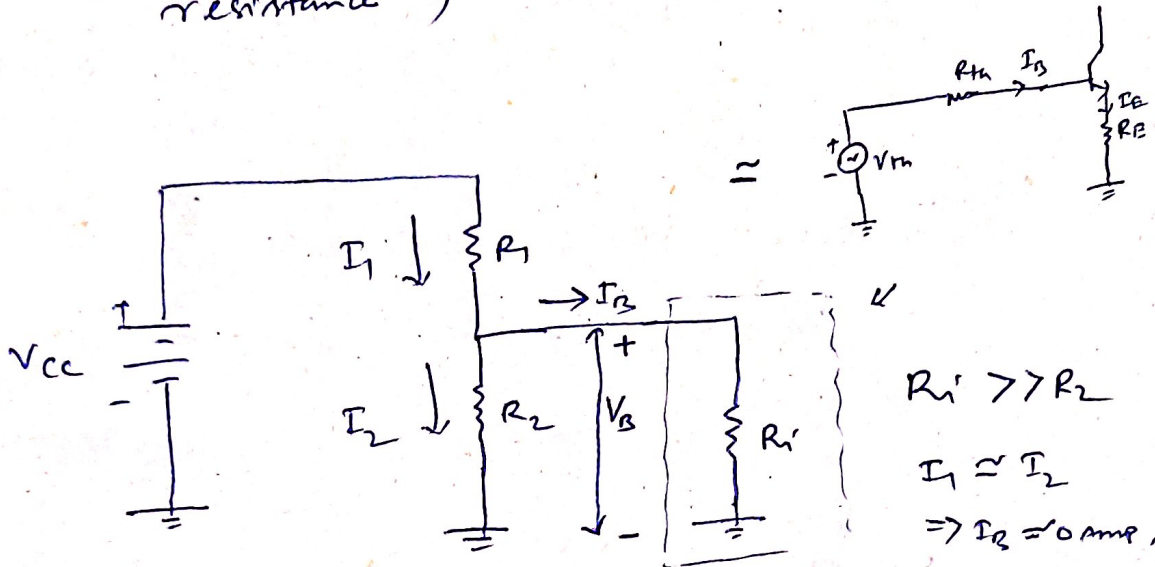 resistance )
Rth IB
IE
RE
+
-
Vth
≃
I1 ↓ R1
→ IB
+
VCC
-
I2 ↓ R2
+
VB
-
Ri
Ri >> R2
I1 ≃ I2
=> IB ≃ 0 Amp.